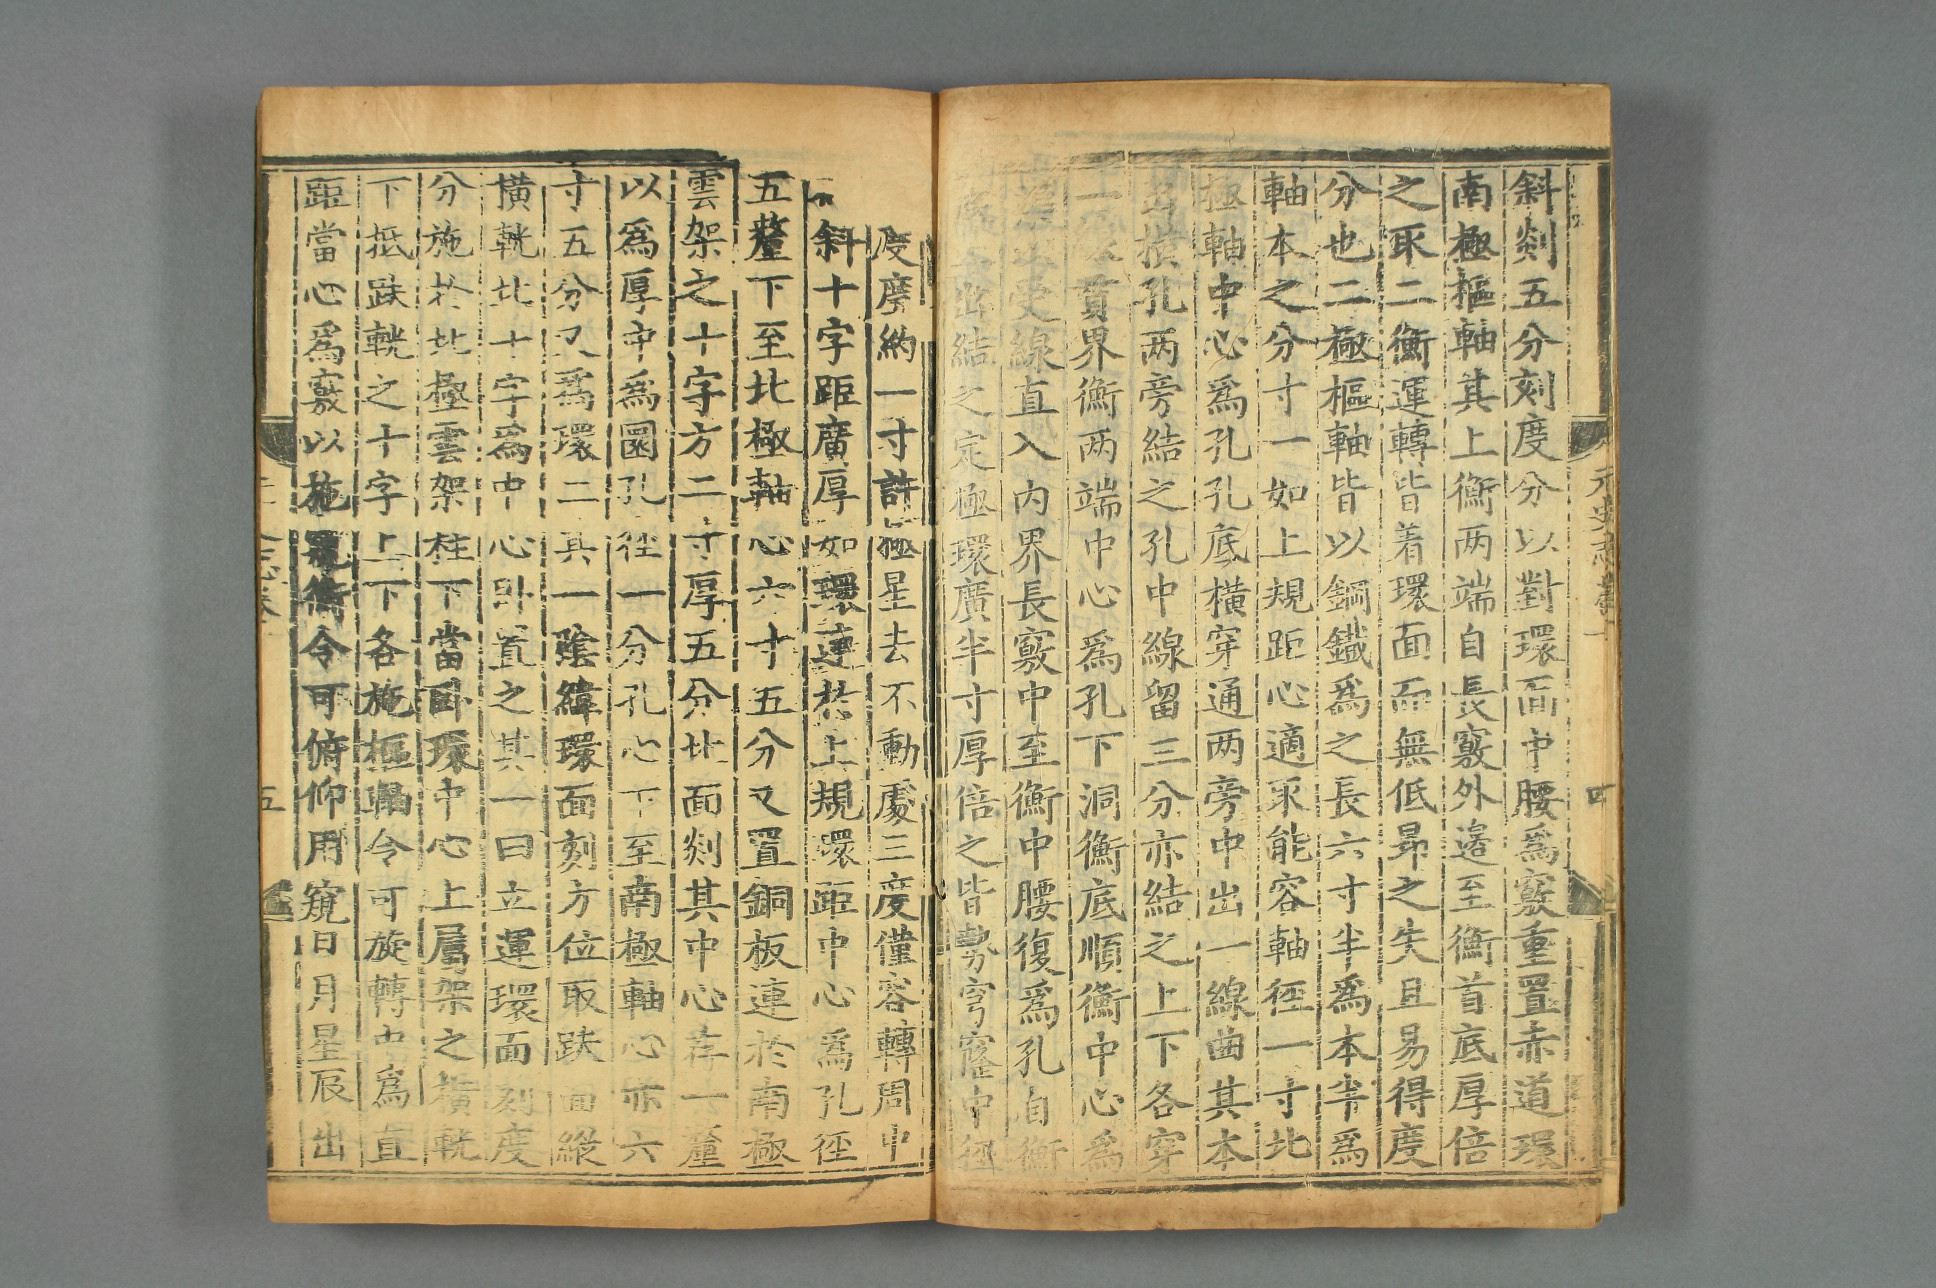 元史志卷一
四
斜剡五分刻度分以對環面中腰為竅重置赤道環
南極樞軸其上衡两端自長竅外邊至衡首底厚倍
之取二衡運轉皆着環面而無低昂之失且易得度
分也二極樞軸皆以鋼鐵為之長六寸半為本半為
軸本之分寸一如上規距心適取能容軸徑一寸北
極軸中心為孔孔底橫穿通两旁中出一線曲其本
出橫孔两旁結之孔中線留三分亦結之上下各穿
一線貫界衡两端中心為孔下洞衡底順衡中心為
渠以受線直入內界長竅中至衡中腰復為孔自衡
底上出結之定極環廣半寸厚倍之皆勢穹窿中徑
度廣納一寸許極星去不動處三度僅容轉周中
斜十字距廣厚如環連於上規環距中心為孔徑
五釐下至北極軸心六寸五分又置銅板連於南極
雲架之十字方二寸厚五分北面剡其中心存一釐
以為厚中為圜孔徑一分孔心下至南極軸心亦六
寸五分又為環二其一陰緯環面刻方位取趺面縱
橫軦北十字為中心卧置之其一曰立運環面刻度
分施於北極雲架柱下當卧環中心上屬架之橫軦
下抵趺軦之十字上下各施樞軸令可旋轉中為直
距當心為竅以施窺衡令可俯仰用窺日月星辰出
五